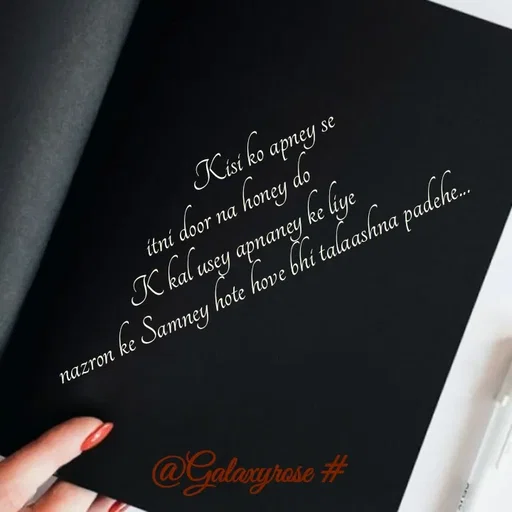 Kisi ko apney se
itni door na honey do
K kal usey apnaney ke liye
nazron ke Samney hote hove bhi talaashna padehe...
@Galaxyrose #